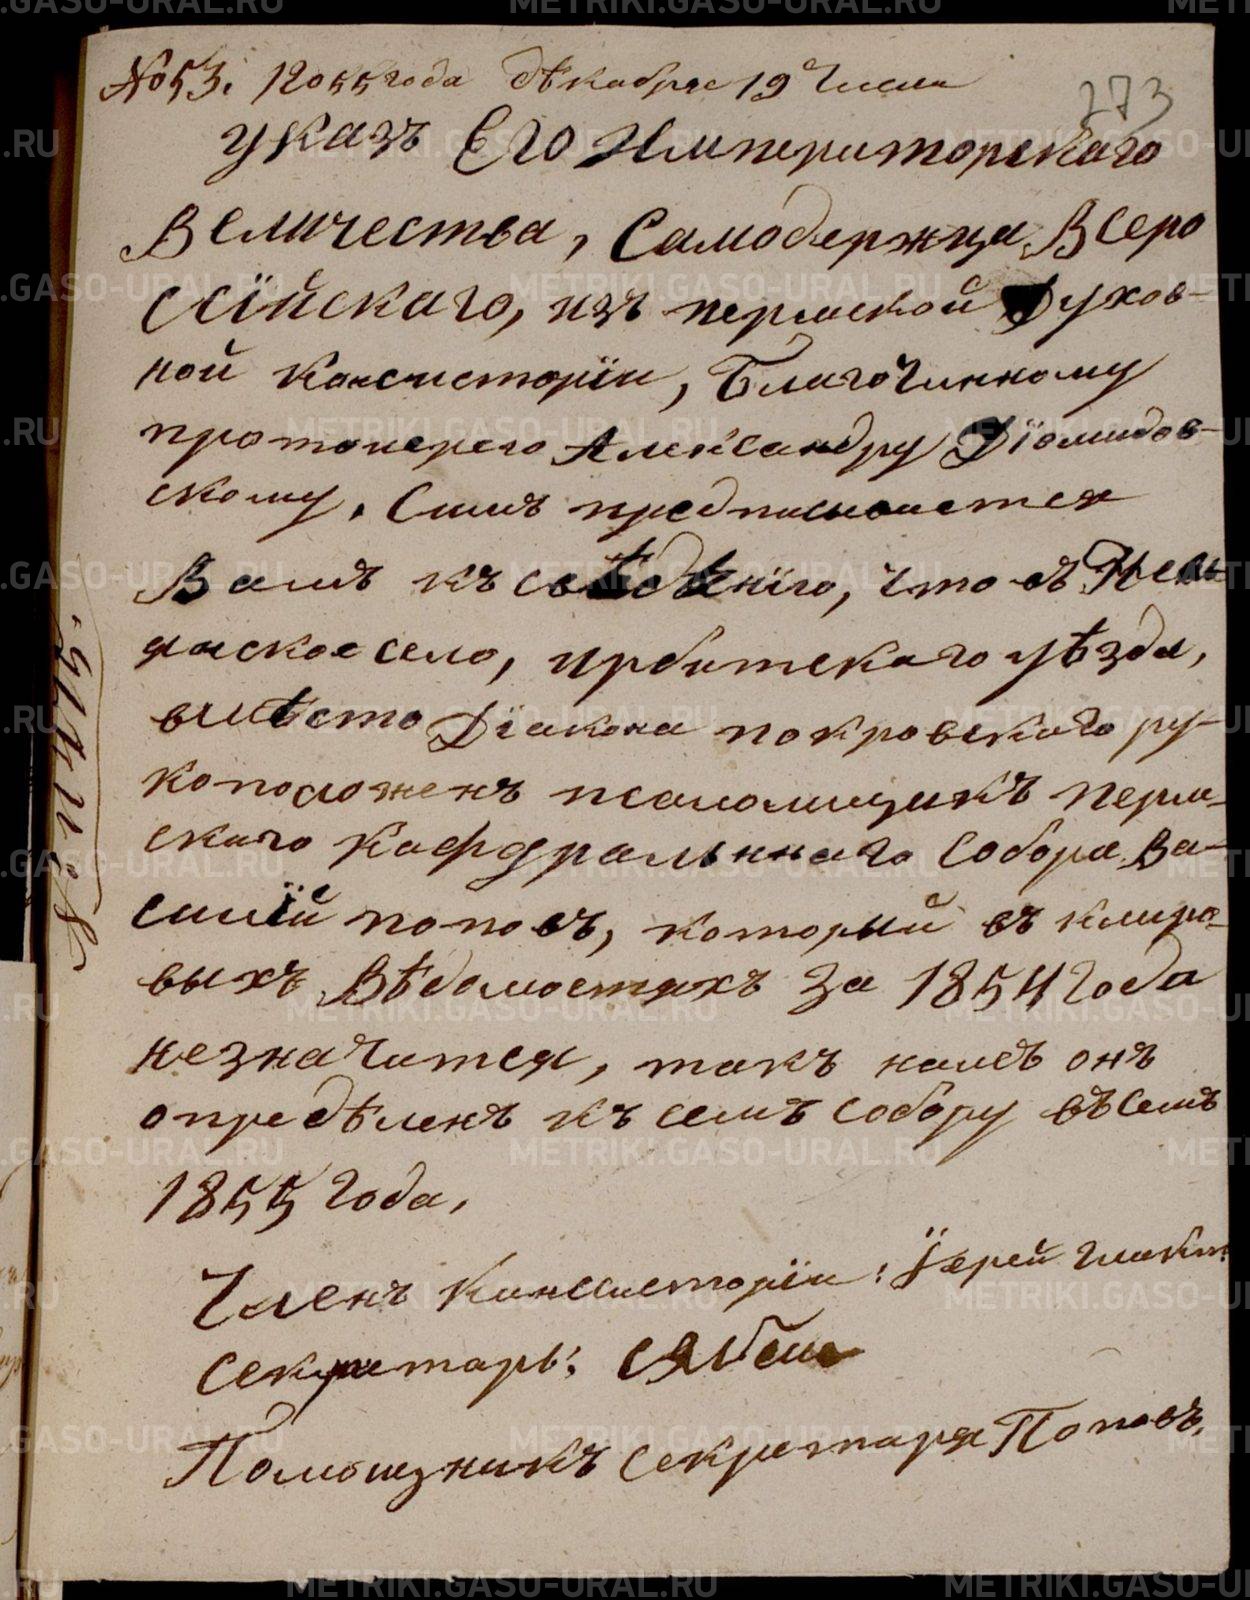 № 53. 1855 года дѣкабря 19 числа
273
указъ Его Императорскаго
Величества, Самодержца Всеро
ссїйскаго, изъ пермской Духов-
ной Консисторїи, Благочинному
протоиерею Александру Дїомидов-
скому. Симъ предписывается
Вамъ къ свѣдѣнїю, что въ
село, ирбитскаго уѣзда,
вмѣсто Дїакона покровскаго ру-
коположенъ псаломщикъ перм-
скаго Кафедральннаго Собора Ва-
силїй поповъ, который въ клиро-
выхъ Вѣдомостяхъ За 1854 года
незначится, такъ какъ онъ
опредѣленъ къ семъ собору въ семъ
1855 года,
Членъ Консисторїи: Їерей
секретарь:
Помошзникъ секретаря Поповъ.